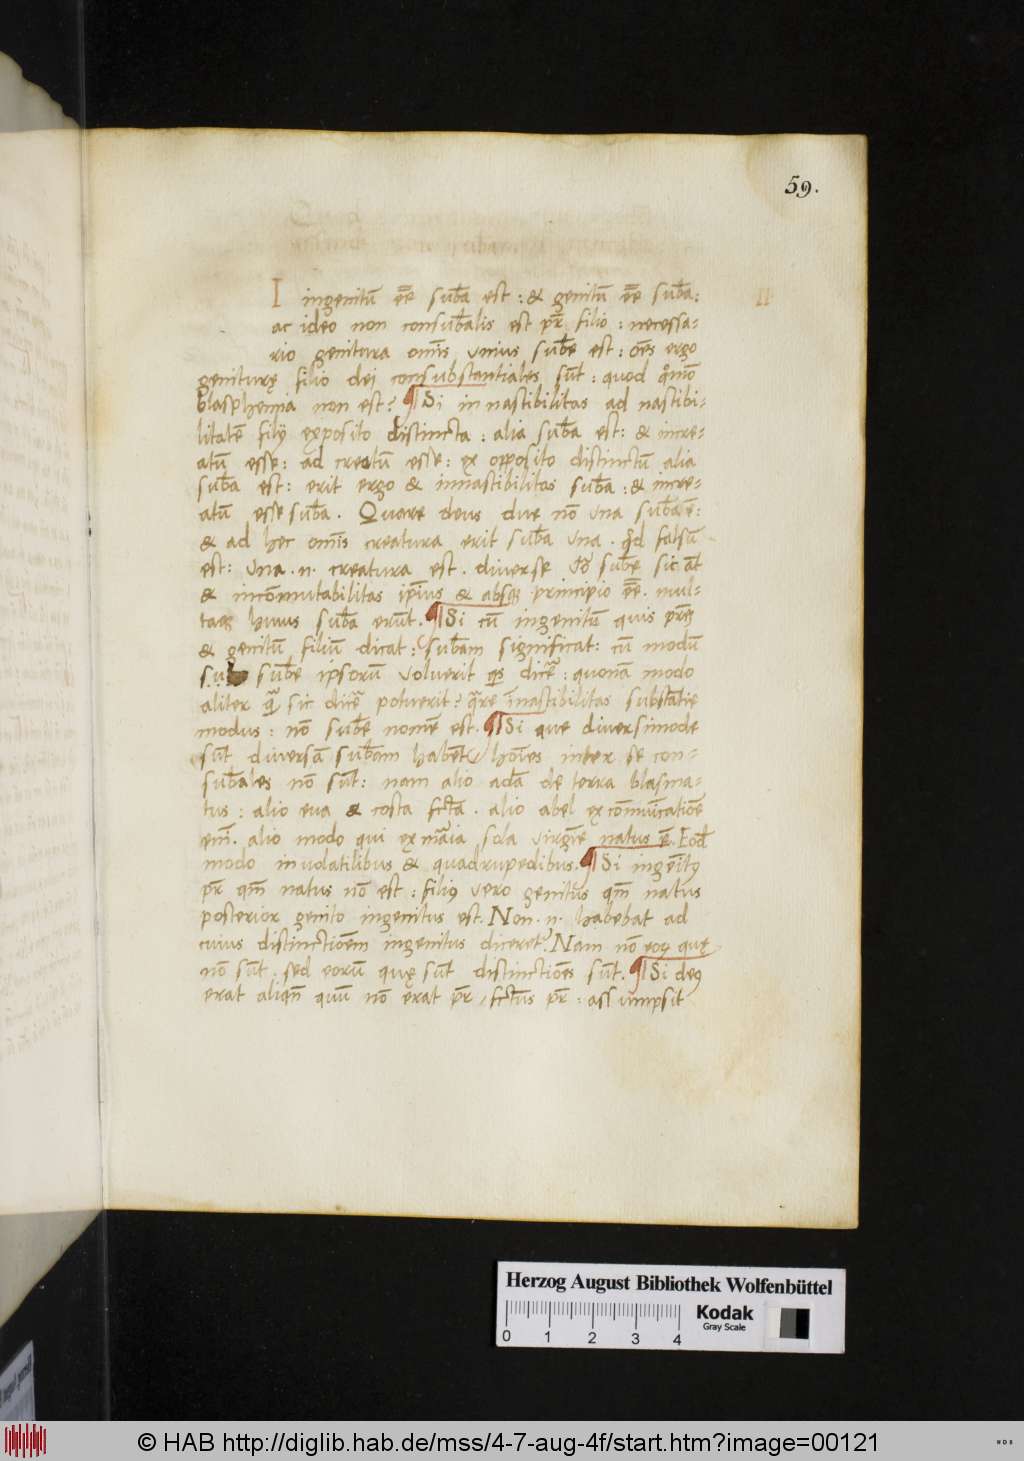 59.
II
I ingenitū ēē sub̄a est : & genitū ēē sub̄a :
ac ideo non consub̄alis est pr̄ filio : necessa-
rio genitura om̄is vnius sub̄e est : oēs ergo
geniturę filio dei consubstantiales sūt : quod
blasphemia non est ? ¶ Si innastibilitas ad nastibi-
litatē filij exposito distincta : alia sub̄a est : & incre-
atū esse : ad creatū esse : ex opposito distinctū alia
sub̄a est : erit ergo & innastibilitas sub̄a : & incre-
atū esse sub̄a . Quare deus due nō vna
& ad hec om̄is creatura erit sub̄a vna . falsū
est : vna . n . creatura est . diverse sub̄e sic āt
& incōmutabilitas & absq principio ēē . mul-
huius sub̄a erūt . ¶ Si cū ingenitū quis
& genitū filiū dicat : sub̄am significat : cū modū
sub̄e ipsorū voluerit dicē : quonā modo
aliter sic dicē potuerit ? innastibilitas substātie
modus : nō sub̄e nomē est . ¶ Si que diversimode
sūt diversā sub̄am habēt / hoīes inter se con-
sub̄ales nō sūt : nam alio adā de terra blasma-
tus : alio eua & costa fctā . alio abel ex cōmūcatiōe
em̄ . alio modo qui ex maīa sola virgīe natus ē . Eod
modo in volatilibus & quadrupedibus . ¶ Si
pr̄ qm̄ natus nō est : fili9 vero genitus qm̄ natus
posterior genito ingenitus est . Non . n . habebat ad
cuius distinctiōem ingenitus diceret . Nam nō quę
nō sūt . sed eorū quę sūt distinctiōes sūt . ¶ Si de9
erat aliqn̄ quū nō erat pr̄ / fctūs pr̄ : assūmpsit
Herzog August Bibliothek Wolfenbüttel
0 1 2 3 4
Kodak
Gray Scale
© HAB http://diglib.hab.de/mss/4-7-aug-4f/start.htm?image=00121